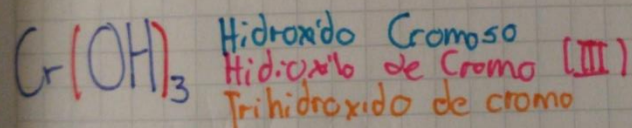 Cr(OH)₃
Hidroxido Cromoso
Hidroxido de Cromo (III)
Trihidroxido de cromo